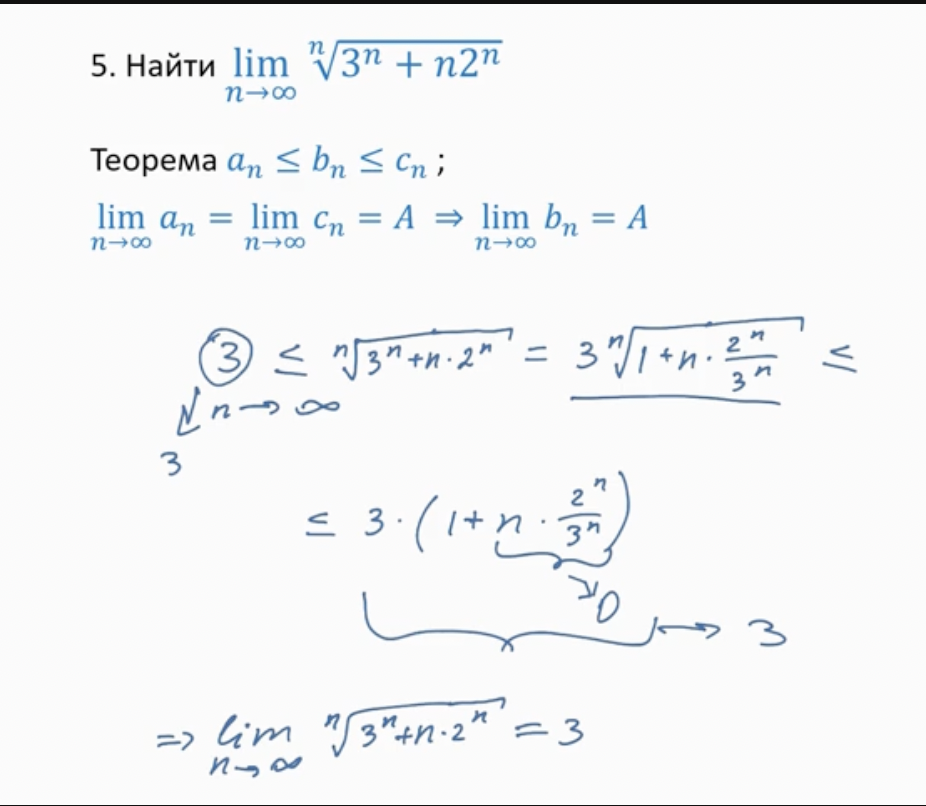 5. Найти lim n→∞ ⁿ√(3ⁿ + n2ⁿ)
Теорема aₙ ≤ bₙ ≤ cₙ ;
lim n→∞ aₙ = lim n→∞ cₙ = A ⇒ lim n→∞ bₙ = A
3 ≤ ⁿ√(3ⁿ + n · 2ⁿ) = 3 ⁿ√(1 + n · 2ⁿ/3ⁿ) ≤
↓ n → ∞
3
≤ 3 · (1 + n · 2ⁿ/3ⁿ)
↘ 0
→ 3
⇒ lim n→∞ ⁿ√(3ⁿ + n · 2ⁿ) = 3